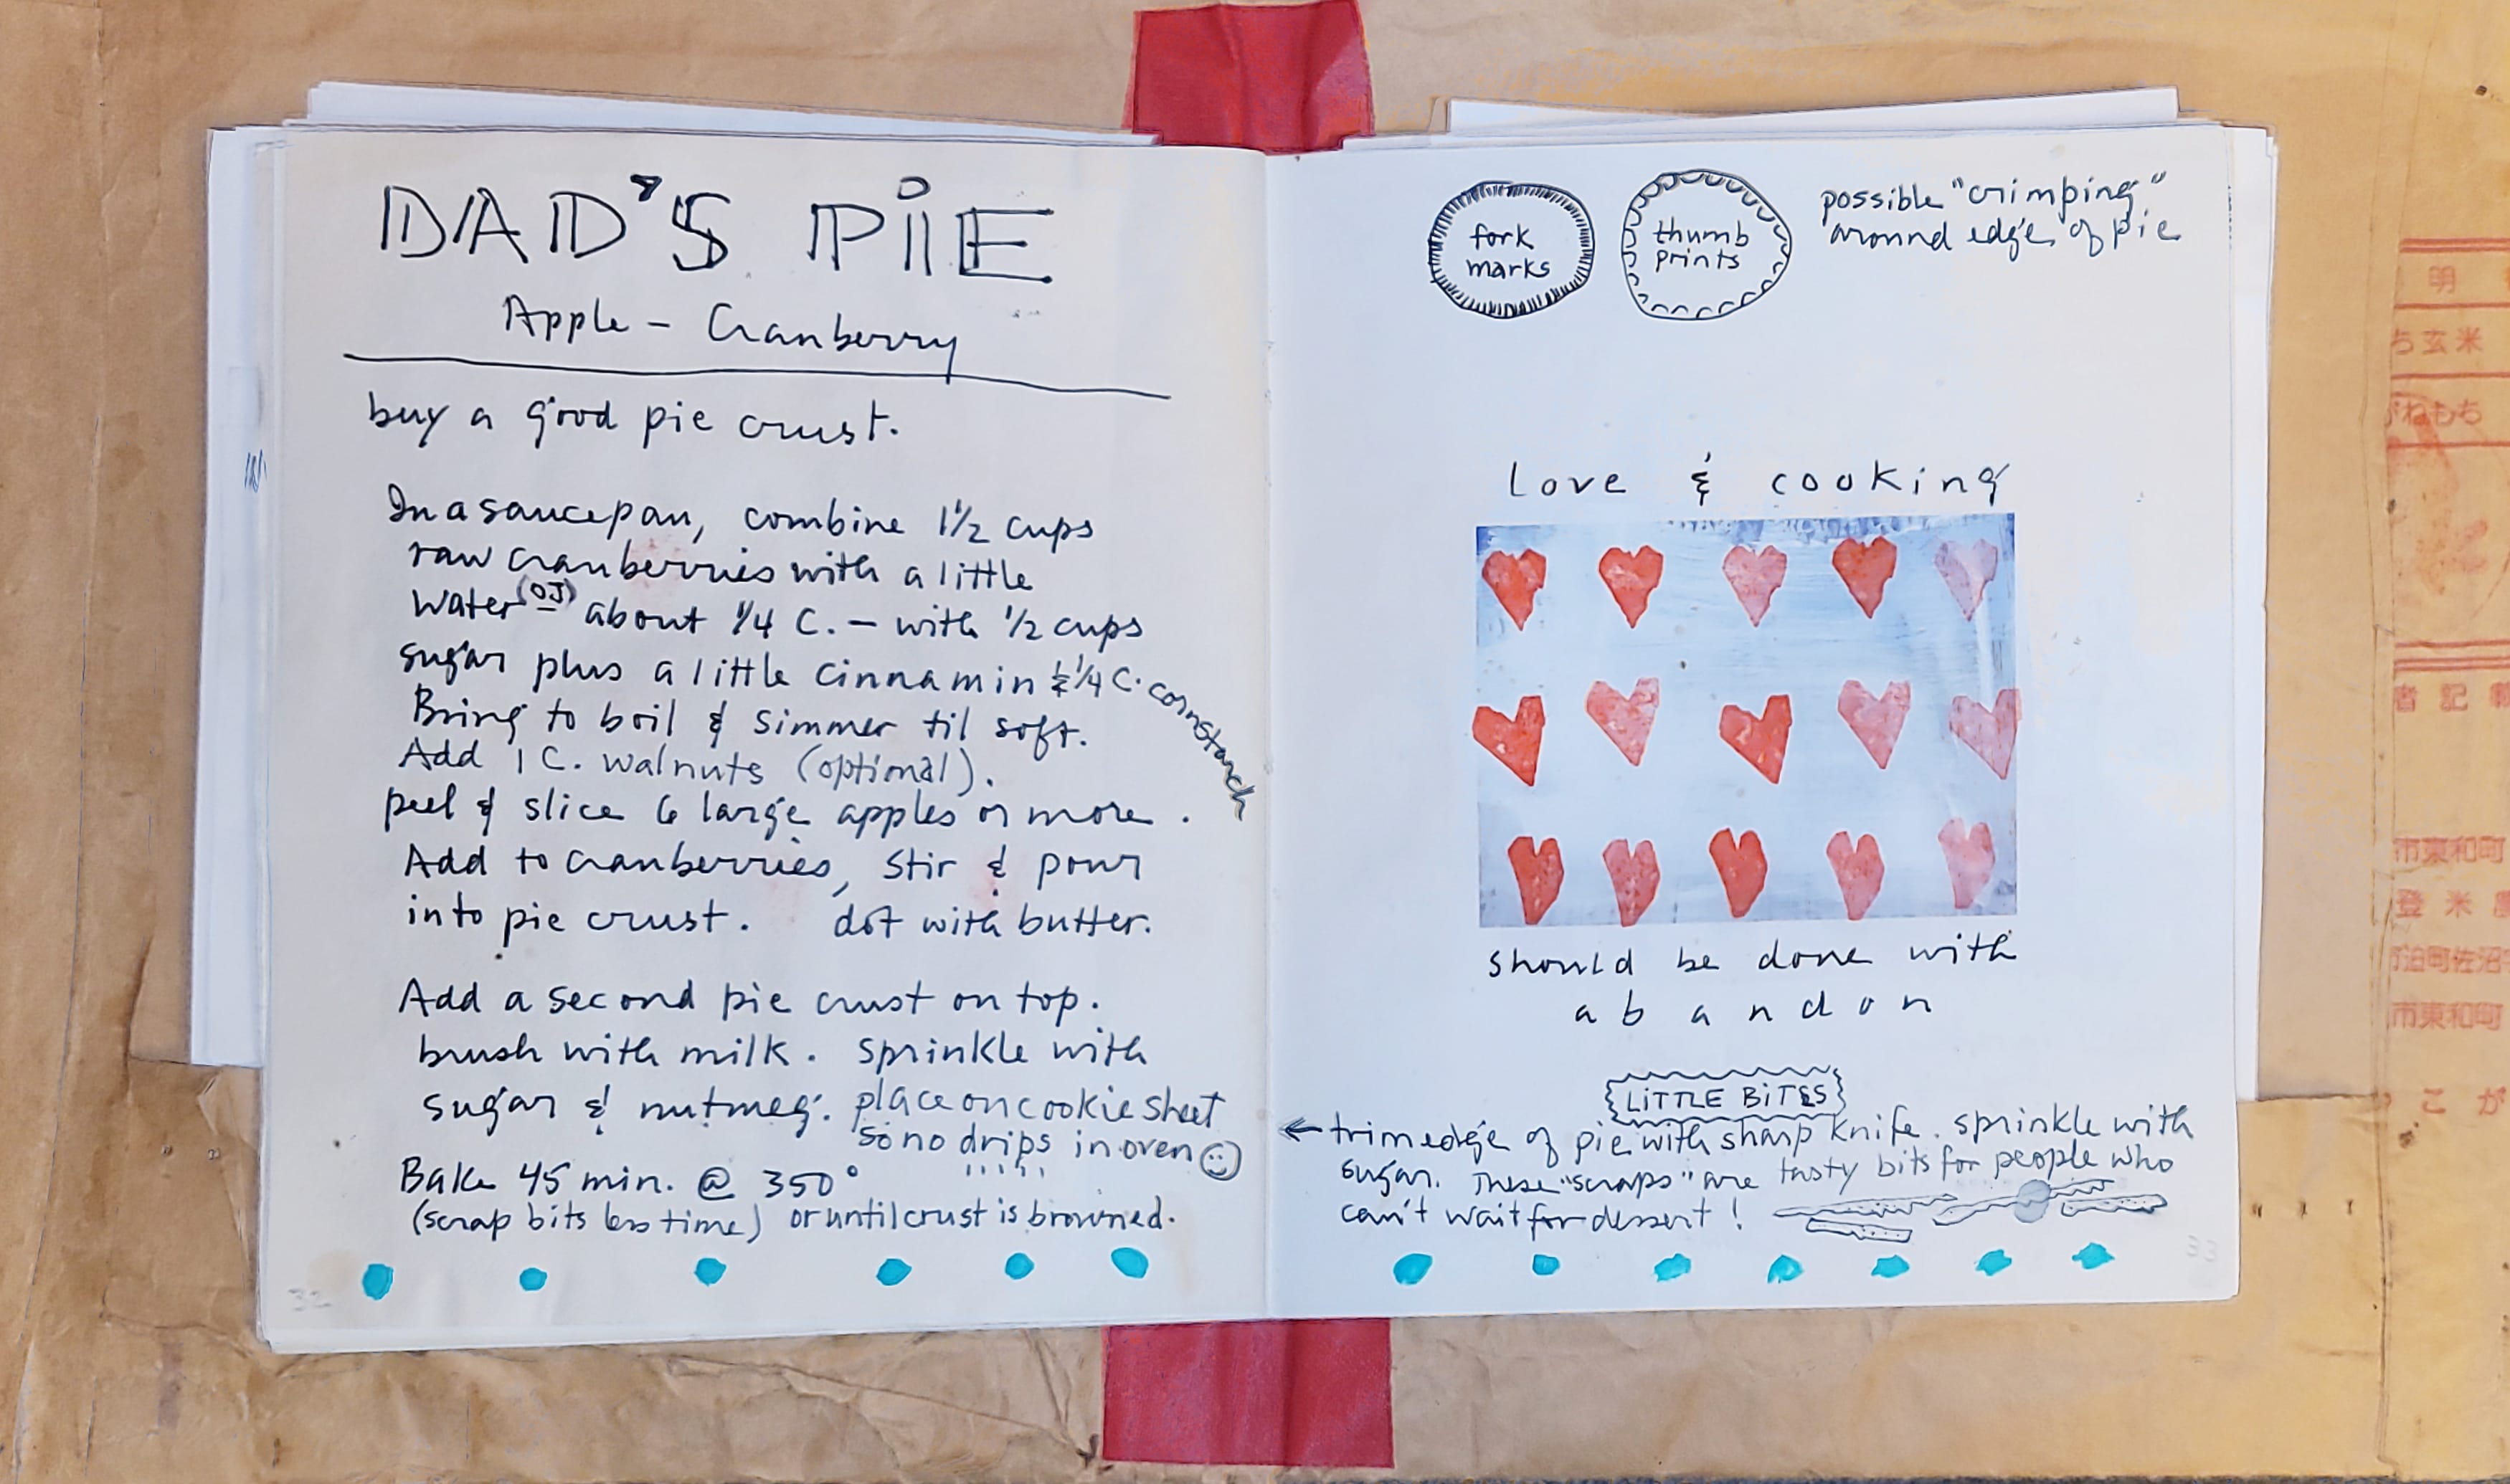 DAD'S PiE
Apple - Cranberry
buy a good pie crust.
In a saucepan, combine 1 1/2 cups
raw cranberries with a little
water (OJ) about 1/4 C. - with 1/2 cups
sugar plus a little cinnamin & 1/4 C. cornstarch
Bring to boil & simmer til soft.
Add 1 C. walnuts (optional).
peel & slice 6 large apples or more.
Add to cranberries, stir & pour
into pie crust. dot with butter.
Add a second pie crust on top.
brush with milk. sprinkle with
sugar & nutmeg. place on cookie sheet
so no drips in oven
Bake 45 min. @ 350°
(scrap bits less time) or until crust is browned.
32
fork
marks
thumb
prints
possible "crimping"
around edge of pie
love & cooking
should be done with
abandon
LiTTLE BiTES
← trim edge of pie with sharp knife. sprinkle with
sugar. These "scraps" are tasty bits for people who
can't wait for dessert!
33
明
ち玄米
がねもち
者記載
市東和町
登米
迫町佐沼
市東和町
こが